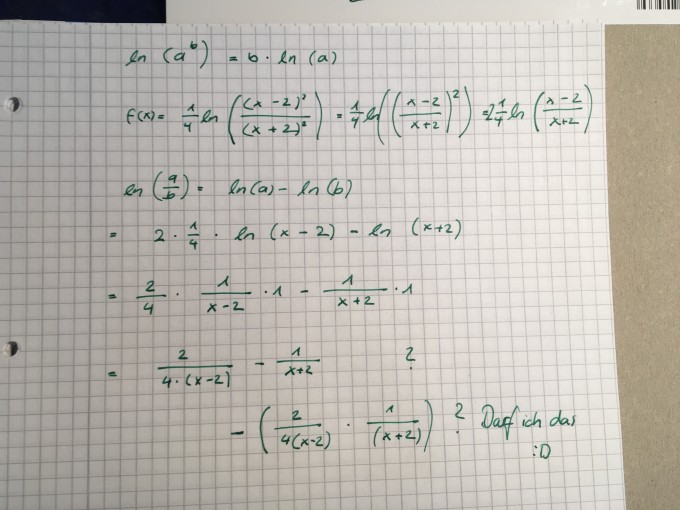 ln (a^b) = b · ln (a)
f(x) = 1/4 ln ((x-2)²/(x+2)²) = 1/4 ln(((x-2)/(x+2))²) = 2·1/4 ln ((x-2)/(x+2))
ln (a/b) = ln(a) - ln(b)
= 2 · 1/4 · ln (x-2) - ln (x+2)
= 2/4 · 1/(x-2) · 1 - 1/(x+2) · 1
= 2/(4·(x-2)) - 1/(x+2) ?
- (2/(4(x-2)) · 1/(x+2)) ? Darf ich das
:D